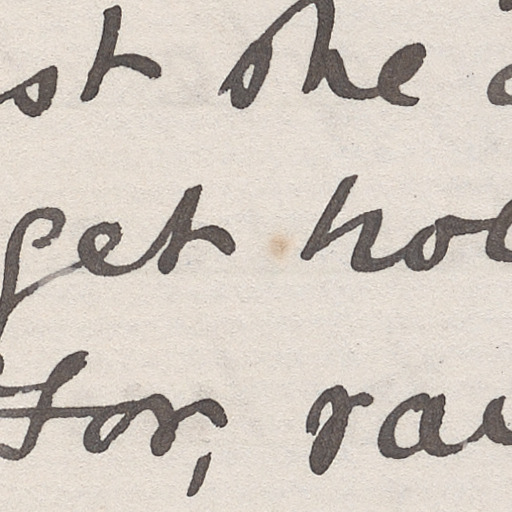 st she
get hol
for, ra